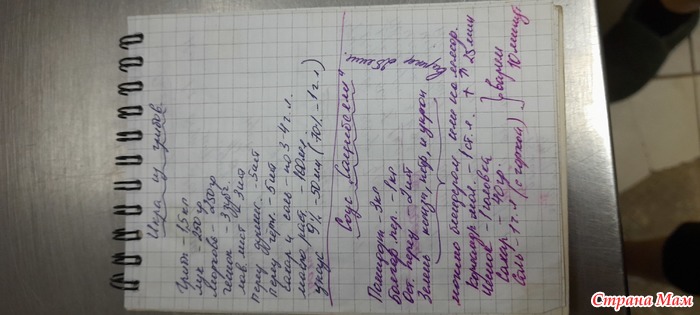 Икра из грибов
Грибы - 1,5 кг
лук - 250 гр
Морковь - 250 гр
чеснок - 3 зубч.
лав. лист - 3 шт
перец душист. - 5 шт
Перец черн. - 5 шт
Сахар и соль - по 3-4 ч.л.
масло раст. - 100 мл
уксус 9% - 50 мл (70% - 1 ч.л)
Соус
Помидоры - 2 кг
Болгар. пер. - 1 кг
Ост. перец - 2 шт
Зелень
можно блендером или на мясор.
Кориандр мол. - 1 ст. л.
Чеснок - 1 головка
Сахар - 40 гр.
Соль - 1 ч.л (с горкой)
+ ↑ 25 мин
варим
10 минут
Страна Мам